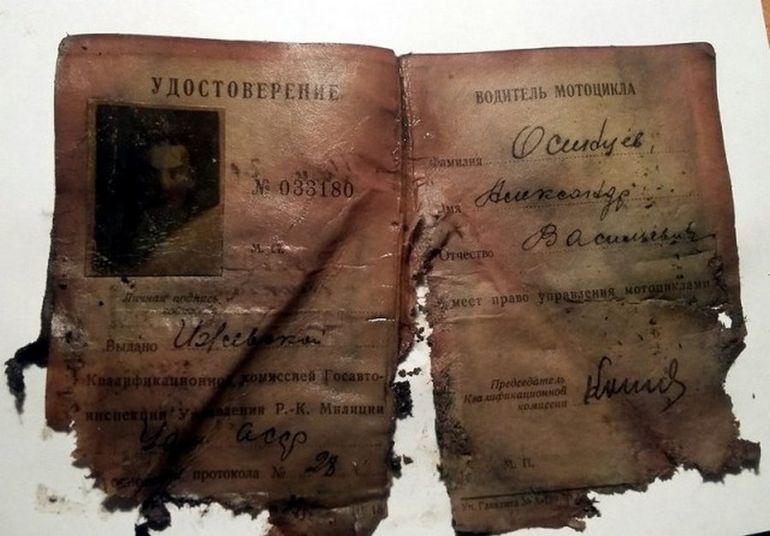 УДОСТОВЕРЕНИЕ
№ 033180
М. П.
Личная подпись
Выдано Ижевской
Квалификационной комиссией Госавто-
инспекции Управления Р.-К. Милиции
АССР
протокола № 28
ВОДИТЕЛЬ МОТОЦИКЛА
Фамилия Осинцев,
Имя Александр
Отчество Васильевич
имеет право управления мотоциклами
Председатель
Квалификационной
комиссии
М. П.